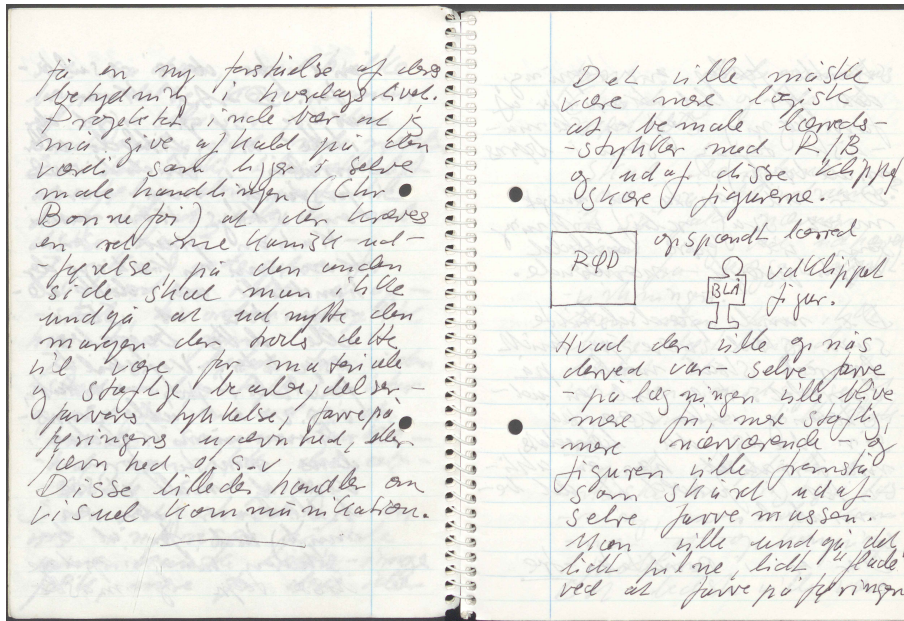 få en ny forståelse af deres
betydning i hverdagslivet.
Projektet indebær at jeg
må give afkald på den
værdi som ligger i selve
malehandlingen (Chr
Bonnefoi) at der kræves
en ret mekanisk ud-
-førelse på den anden
side skal man ikke
undgå at udnytte den
margen der trods dette
vil være for materiale
og stoflige bearbejdelser -
farvens tykkelse, farvepå
føringens ujævnhed, eller
jævnhed o.s.v
Disse billeder handler om
visuel kommunikation.
Det ville måske
være mere logisk
at bemale lærreds-
-stykker med R/B
og udaf disse klippe/
skære figurerne.
opspændt lærred
RØD
BLÅ
udklippet
figur.
Hvad der ville opnås
derved var - selve farve
-pålægningen ville blive
mere fri, mere stoflig,
mere nærværende - og
figuren ville fremstå
som skåret udaf
selve farvemassen.
Man ville undgå det
lidt pilne, lidt
ved at farvepåføringen